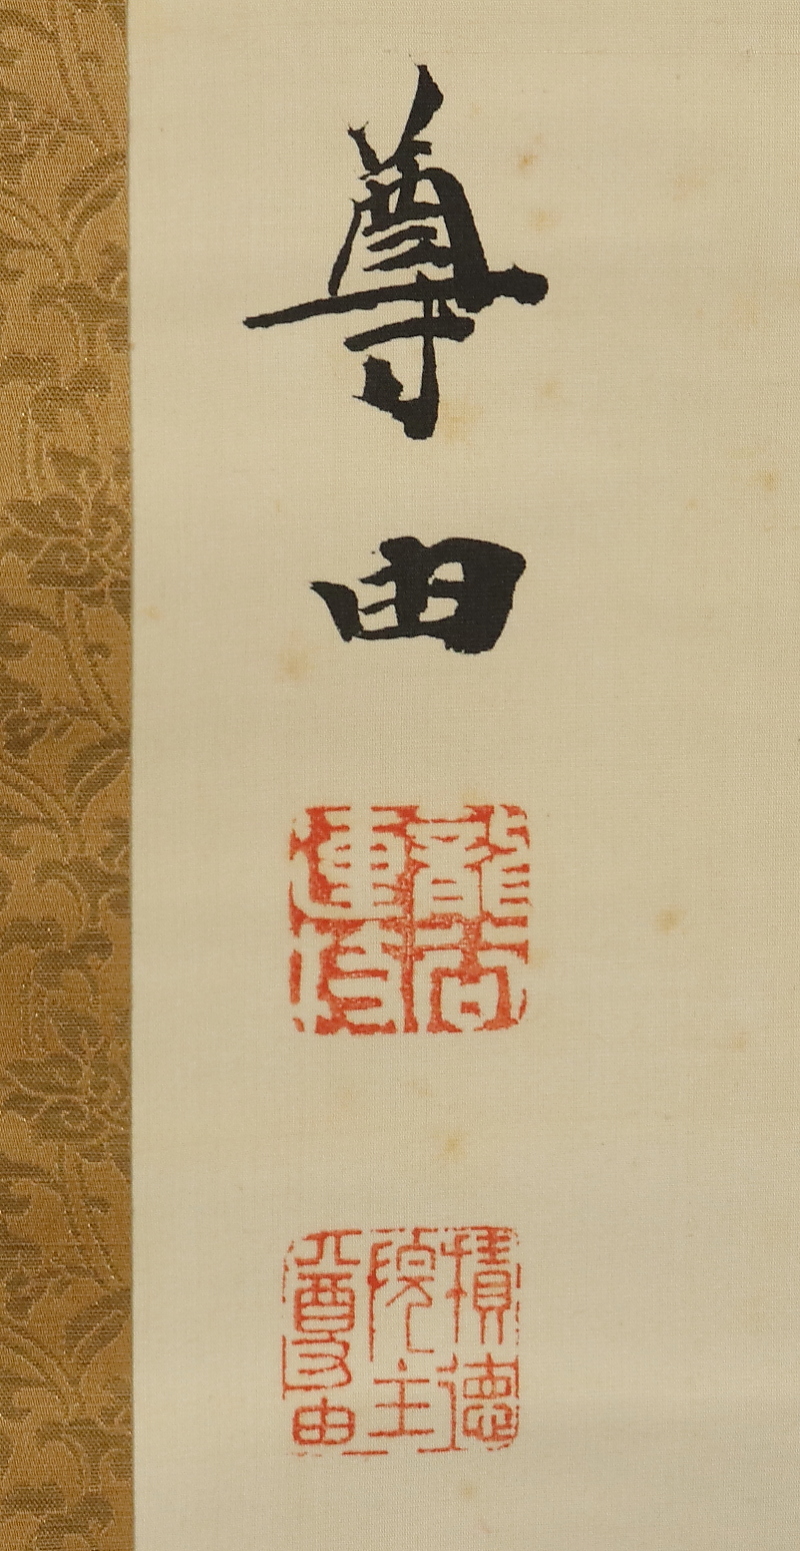 尊由
龍谷
連枝
積德
院主
尊由